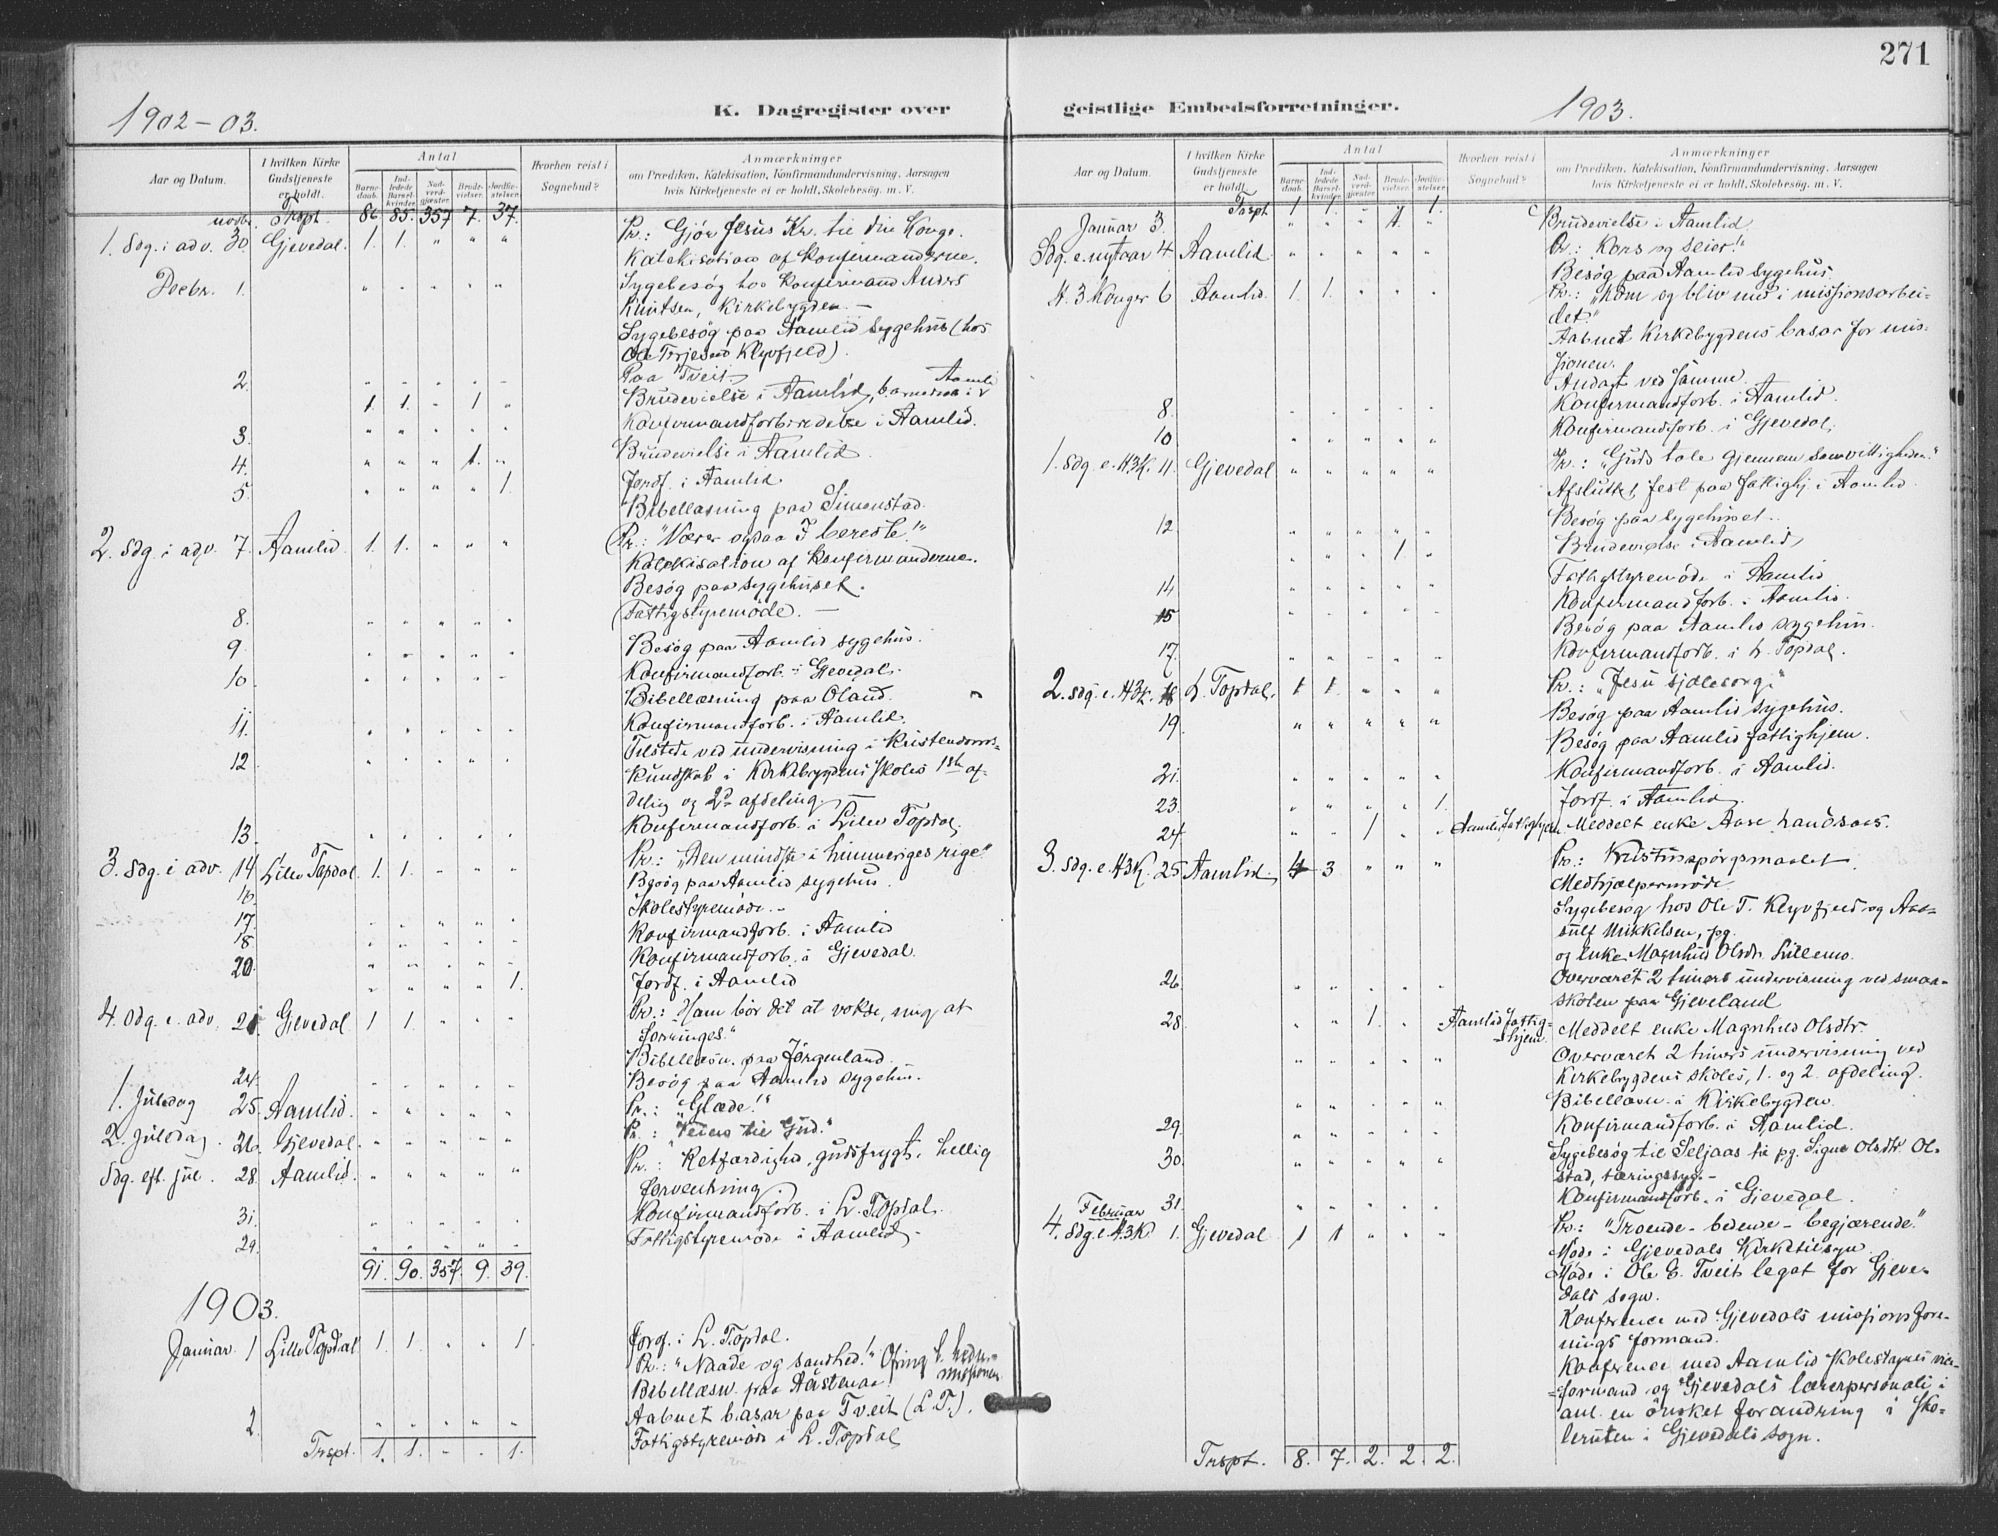 271
1902-03.
K. Dagregister over
geistlige Embedsforretninger.
1903.
Aar og Datum.
I hvilken Kirke Gudstjeneste er holdt.
Antal
Barnedaab.
Indledede Barselkvinder.
Nadverdgjæster.
Brudevielser.
Jordfæstelser.
Hvorhen reist i Sognebud?
Anmærkninger
om Prædiken, Katekisation, Konfirmandundervisning, Aarsagen
hvis Kirketjeneste ei er holdt, Skolebesøg m. V.
Trspt. 86. 85. 357 7. 37.
1. Sdg. i adv. 30. Gjevedal. 1. 1. " " " Pr.: Gjør Jesus Kr. til din Konge.
Katekisation af Konfirmanderne.
Decbr. 1. " " " " " Sygebesøg hos Konfirmand Anders
Knutsen, Kirkebygden. —
Sygebesøg paa Aamlid sygehus (hos
Ole Terjesen Klyvfjeld).
2. " " " " " Paa Tveit.
1. 1. " 1 " Brudevielse i Aamlid, barnedaab i Aamli
3. " " " " " Konfirmandforberedelse i Aamlid.
4. " " " 1. " Brudevielse i Aamlid.
5. " " " " 1. Jordf. i Aamlid
Bibellæsning paa Simonstad.
2. Sdg. i adv. 7. Aamlid. 1. 1. " " " Pr.: "Værer ogsaa I beredte!"
Katekisation af Konfirmanderne.
Besøg paa sygehuset.
8. " " " " " Fattigstyremøde. —
9. " " " " " Besøg paa Aamlid sygehus.
10. " " " " " Konfirmandforb. i Gjevedal.
Bibellæsning paa Oland.
11. " " " " " Konfirmandforb. i Aamlid.
12. " " " " " Tilstede ved undervisning i Kristendoms-
kundskab i Kirkebygdens skoles 1ste af-
deling og 2den afdeling.
13. " " " " " Konfirmandforb. i Lille Topdal.
3. Sdg. i adv. 14. Lille Topdal. 1. 1. " " " Pr.: "Den mindste i himmeriges rige."
16. Besøg paa Aamlid sygehus.
Skolestyremøde. —
17. " " " " " Konfirmandforb. i Aamlid
18. " " " " " Konfirmandforb. i Gjevedal.
20. " " " " 1. Jordf. i Aamlid
4. Sdg. i adv. 21. Gjevedal 1 1. " " " Pr.: Ham bør det at vokse, mig at
forringes."
Bibellæsn. paa Jørgenland.
24. " " " " " Besøg paa Aamlid sygehus.
1. Juledag 25. Aamlid. " " " " " Pr.: "Glæde!"
2. Juledag. 26. Gjevedal. " " " " " Pr.: "Veien til Gud."
Sdg. eft. jul. 28. Aamlid. " " " " " Pr.: Retfærdighed, gudsfrygt, hellig
forventning.
31. " " " " " Konfirmandforb. i L. Topdal.
29. " " " " " Fattigstyremøde i Aamlid.
91. 90. 357. 9. 39.
1903.
Januar. 1 Lille Topdal 1. 1. " " 1. Jordf. i L. Topdal.
Pr.: "Naade og sandhed!" Ofring t. hedn.-
missionen
Bibellæsn. paa
Aabnet basar paa Tveit (L. T.).
2. " " " " " Fattigstyremøde i L. Topdal
Trspt. 1. 1. " " 1.
Trspt 1. 1. " " 1.
Januar 3. " " " 1. " Brudevielse i Aamlid.
Sdg. e. nytaar 4 Aamlid. " " " " " Pr.: Kors og seier!"
Besøg paa Aamlid sygehus.
H. 3 Konger 6 Aamlid. 1. 1. " " " Pr.: "Kom og bliv med i missionsarbei-
det."
Aabnet Kirkebygdens basar for mis-
sionen.
Andagt ved samme.
8. " " " " " Konfirmandforb. i Aamlid.
10 " " " " " Konfirmandforb. i Gjevedal.
1. Sdg. e. H3K. 11. Gjevedal " " " " " Pr.: "Guds tale gjennem samvittigheden."
Afsluttet fest paa fattighj. i Aamlid.
12 " " " " " Besøg paa sygehuset.
" " " 1 " Brudevielse i Aamlid.
14 " " " " " Fattigstyremøde i Aamlid.
Konfirmandforb. i Aamlid.
15 " " " " " Besøg paa Aamlid sygehus.
17. " " " " " Konfirmandforb. i L. Topdal.
2. Sdg. e. H3K. 18 L. Topdal. 1 1. " " " Pr.: "Jesu sjælesorg."
19. " " " " " Besøg paa Aamlid sygehus.
Besøg paa Aamlid fattighjem.
21. " " " " " Konfirmandforb. i Aamlid.
23. " " " " 1. Jordf. i Aamlid.
24. " " 1 " " Aamlid fattighjem. Meddelt enke Aase Landsaas.
3. Sdg. e. H3K. 25 Aamlid. 4 3 " " " Pr.: Kristusspørgsmaalet.
Medhjælpermøde.
Sygebesøg hos Ole T. Klyvfjeld og Aa-
sulf Mikkelsen, pg.
og enke Magnhild Olsdtr. Lillemo.
26. " " " " " Overværet 2 timers undervisning ved smaa-
skolen paa Gjeveland
28. " " 1. " " Aamlid fattig-
hjem. Meddelt enke Magnhild Olsdtr.
" " " " " Overværet 2 timers undervisning ved
Kirkebygdens skoles, 1. og 2. afdeling.
" " " " " Bibellæsn. i Kirkebygden.
29. " " " " " Konfirmandforb. i Aamlid.
30. " " " " " Sygebesøg til Seljaas til pg. Signe Olsdtr. Ol-
stad, tæringssyg. —
31. " " " " " Konfirmandforb. i Gjevedal.
Februar
4. Sdg. e. H3K 1. Gjevedal 1 1 " " " Pr.: "Troende - bedende - begjærende."
Møde i Gjevedals Kirketilsyn.
Møde i Ole E. Tveits legat for Gjeve-
dals sogn.
Konference med Gjevedals missionsfore-
nings formand.
Konference med Aamlid skolestyres vice-
formand og Gjevedals lærerpersonale i
anl. en ønsket forandring i sko-
leruten i Gjevedals sogn.
Trspt. 8. 7. 2. 2. 2.